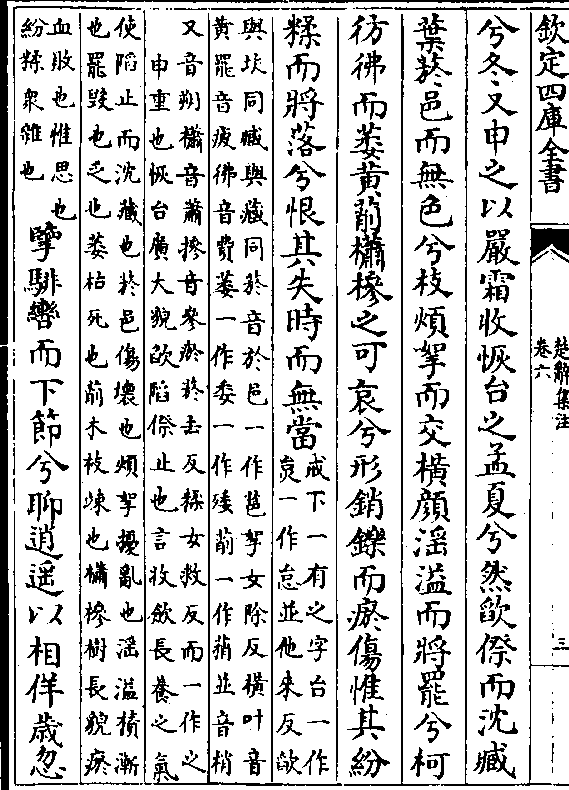 欽定四庫全書
楚辭集注
卷六
三
兮冬又申之以嚴霜收恢台之孟夏兮然欿傺而沈臧
葉菸邑而無色兮枝煩挐而交橫顔淫溢而將罷兮柯
彷彿而萎黃萷櫹槮之可哀兮形銷鑠而瘀傷惟其紛
糅而將落兮恨其失時而無當
戒下一有之字台一作
炱一作怠並他來反欿
與坎同臧與藏同菸音於邑一作邑挐女除反橫叶音
黃罷音疲彿音費萎一作委一作矮萷一作梢並音梢
又音朔櫹音蕭槮音參瘀於去反糅女救反而一作之
申重也恢台廣大貌欿陷傺止也言收斂長養之氣
使陷止而沈藏也菸邑傷壞也煩挐擾亂也淫溢積漸
也罷毀也乏也萎枯死也萷木枝竦也櫹槮樹長貌瘀
血敗也惟思也
紛糅衆雜也
擥騑轡而下節兮聊逍遥以相佯歲忽